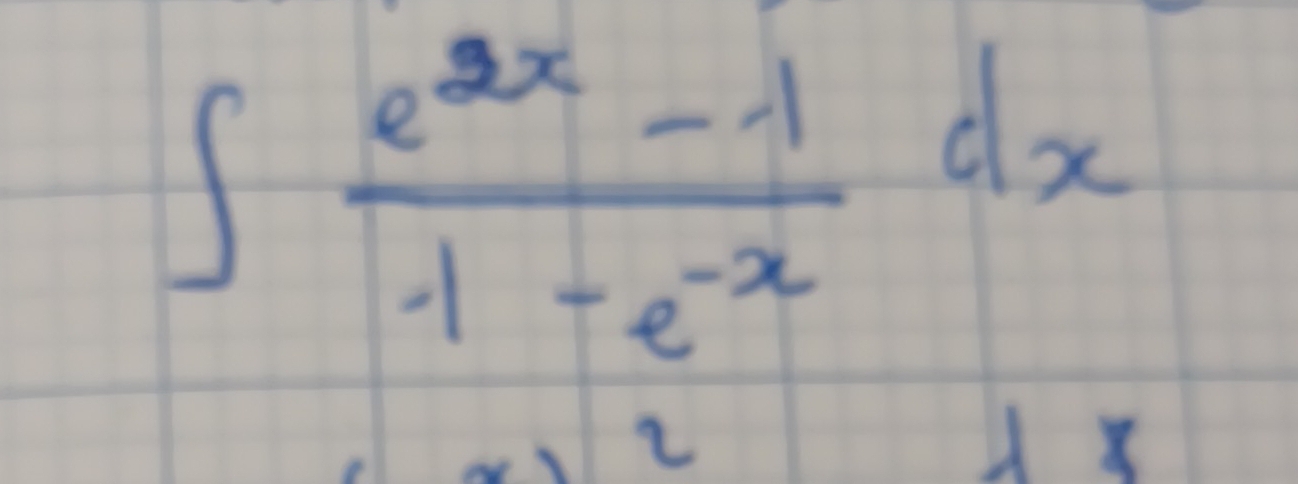 ∫ (e^{2x} - 1)/(1 - e^{-x}) dx